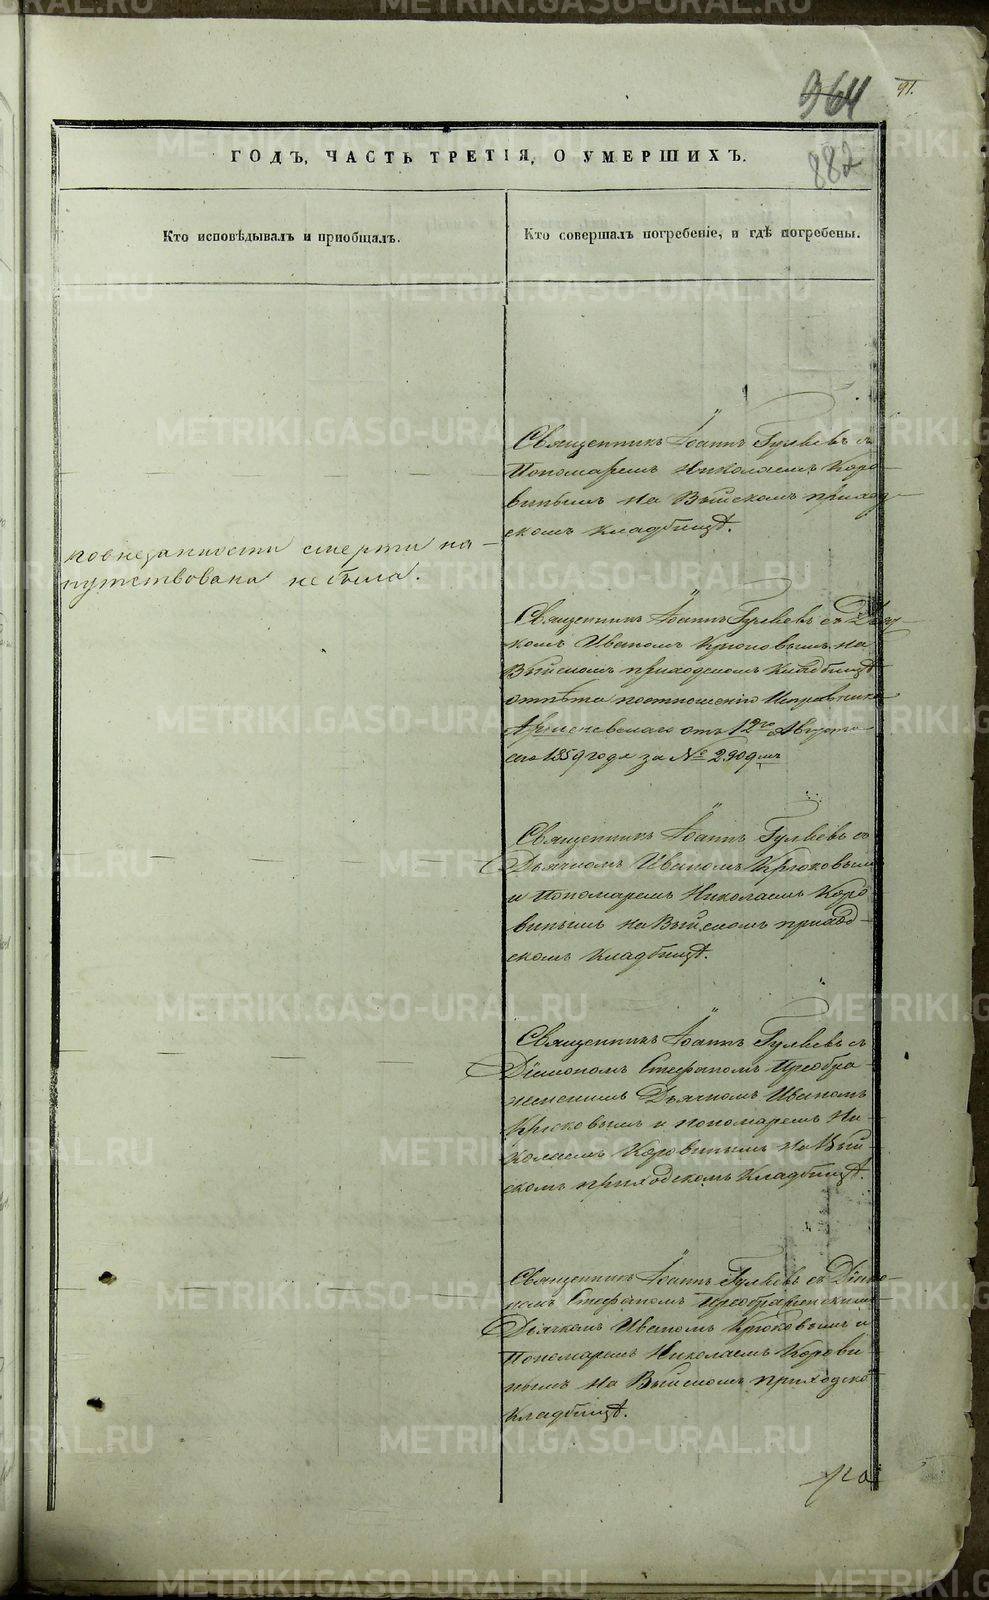 364
91.
887
ГОДЪ, ЧАСТЬ ТРЕТІЯ, О УМЕРШИХЪ.
Кто исповѣдывалъ и пріобщалъ.
Кто совершалъ погребеніе, и гдѣ погребены.
Священникъ Іоаннъ Гуляевъ съ
Пономаремъ Николаемъ Коро-
винымъ на Выйскомъ приход-
скомъ кладбищѣ.
по внезапности смерти на-
путствована не была.
Священникъ Іоаннъ Гуляевъ съ Дьяч-
комъ Иваномъ Крюковымъ на
Выйскомъ приходскомъ кладбищѣ
отпѣта по отношенію Исправника
отъ 12го Августа
сего 1859 года за № 2909мъ
Священникъ Іоаннъ Гуляевъ съ
Дьячкомъ Иваномъ Крюковымъ
и Пономаремъ Николаемъ Коро-
винымъ на Выйскомъ приход-
скомъ кладбищѣ.
Священникъ Іоаннъ Гуляевъ съ
Діакономъ Стефаномъ Преобра-
женскимъ Дьячкомъ Иваномъ
Крюковымъ и пономаремъ Ни-
колаемъ Коровинымъ на Вый-
скомъ приходскомъ кладбищѣ.
Священникъ Іоаннъ Гуляевъ съ Діако-
номъ Стефаномъ Преображенскимъ
Дьячкомъ Иваномъ Крюковымъ и
Пономаремъ Николаемъ Корови-
нымъ на Выйскомъ приходско
кладбищѣ.
METRIKI.GASO-URAL.RU